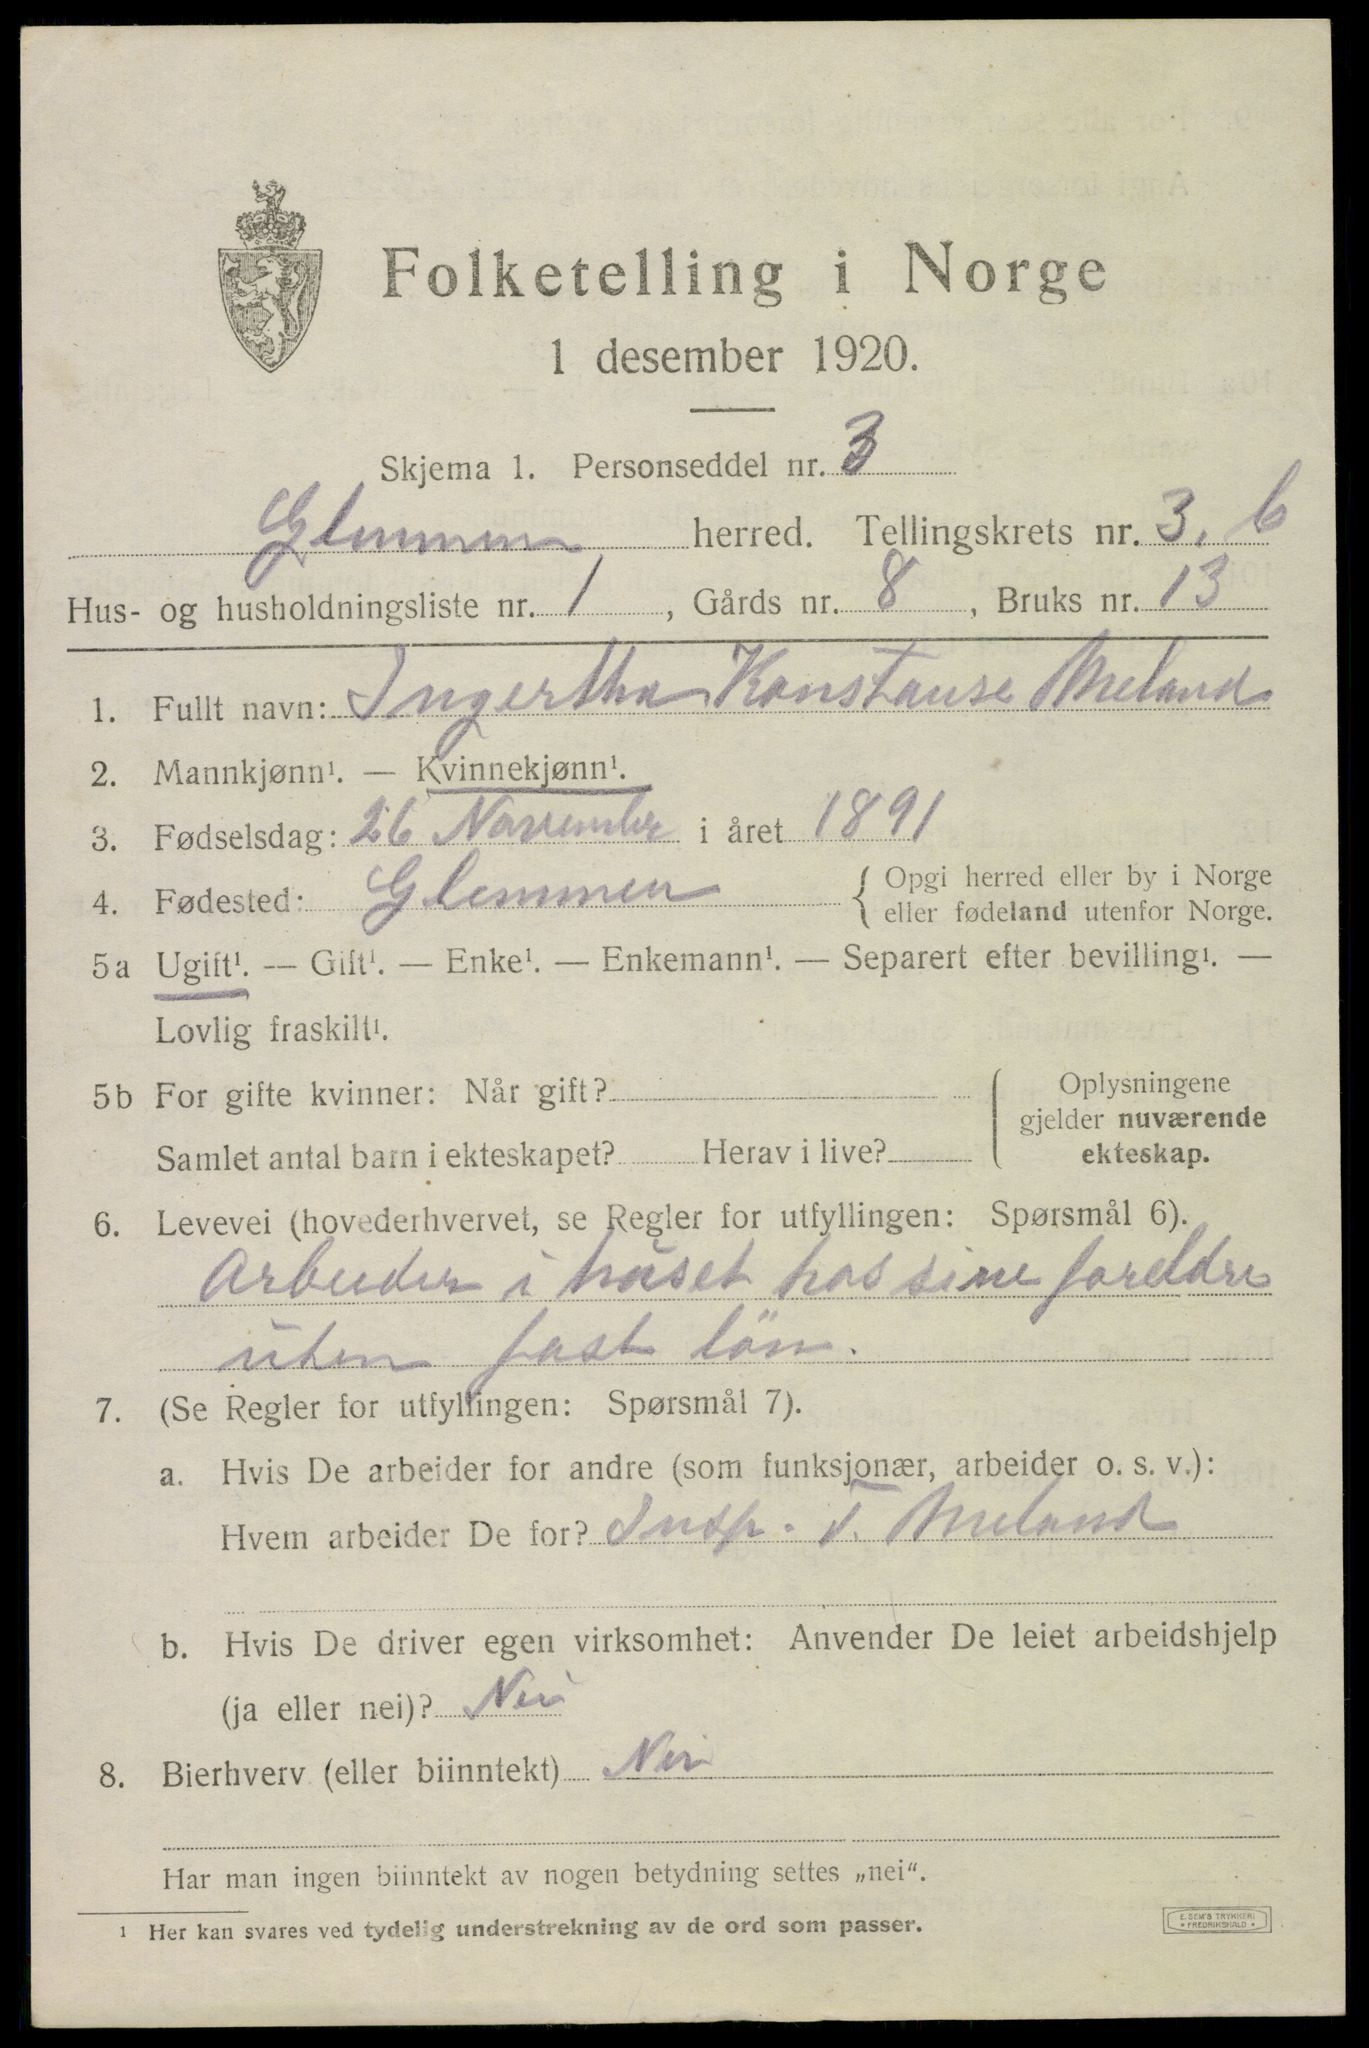 Folketelling i Norge
1 desember 1920.
Skjema 1. Personseddel nr. 3
Glemmen herred. Tellingskrets nr. 3, b
Hus- og husholdningsliste nr. 1, Gårds nr. 8, Bruks nr. 13
1. Fullt navn: Ingertha Konstanse Meland
2. Mannkjønn¹. — Kvinnekjønn¹.
3. Fødselsdag: 26 November i året 1891
4. Fødested: Glemmen { Opgi herred eller by i Norge
eller fødeland utenfor Norge.
5a Ugift¹. — Gift¹. — Enke¹. — Enkemann¹. — Separert efter bevilling¹. —
Lovlig fraskilt¹.
5b For gifte kvinner: Når gift?
Samlet antal barn i ekteskapet? Herav i live?
{ Oplysningene
gjelder nuværende
ekteskap.
6. Levevei (hovederhvervet, se Regler for utfyllingen: Spørsmål 6).
Arbeider i huset hos sine foreldre
uten fast lön.
7. (Se Regler for utfyllingen: Spørsmål 7).
a. Hvis De arbeider for andre (som funksjonær, arbeider o. s. v.):
Hvem arbeider De for? Insp. T. Meland
b. Hvis De driver egen virksomhet: Anvender De leiet arbeidshjelp
(ja eller nei)? Nei
8. Bierhverv (eller biinntekt) Nei
Har man ingen biinntekt av nogen betydning settes „nei“.
¹ Her kan svares ved tydelig understrekning av de ord som passer.
E. SEM'S TRYKKERI
• FREDRIKSHALD •